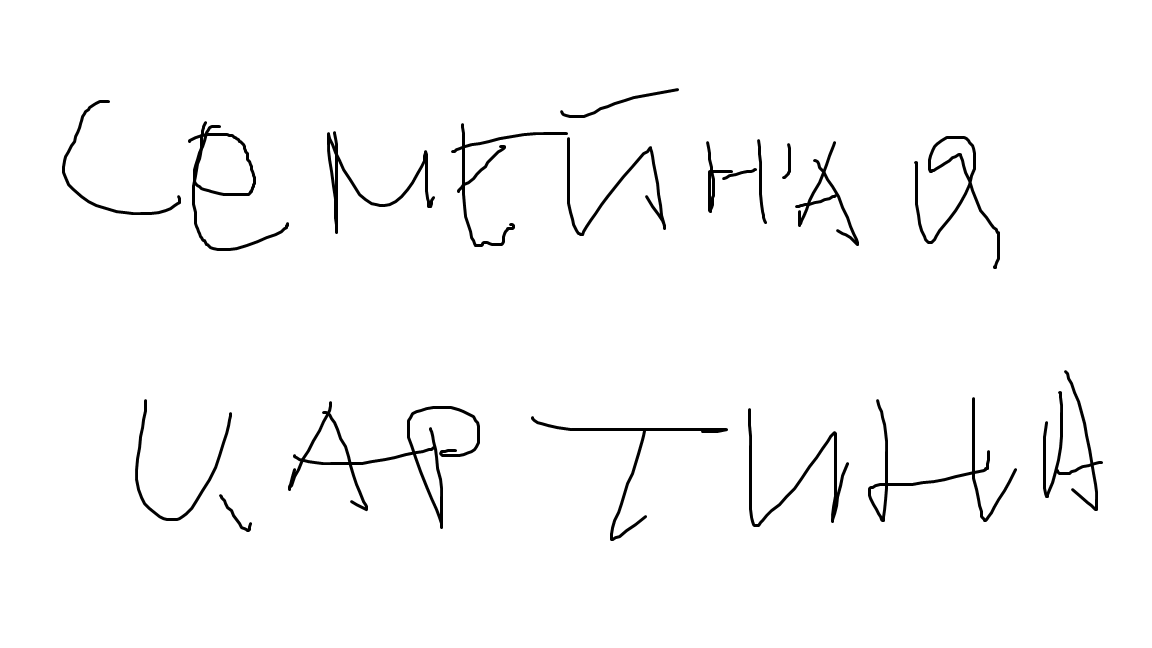 СЕМЕЙНАЯ
ЦАРТИНА